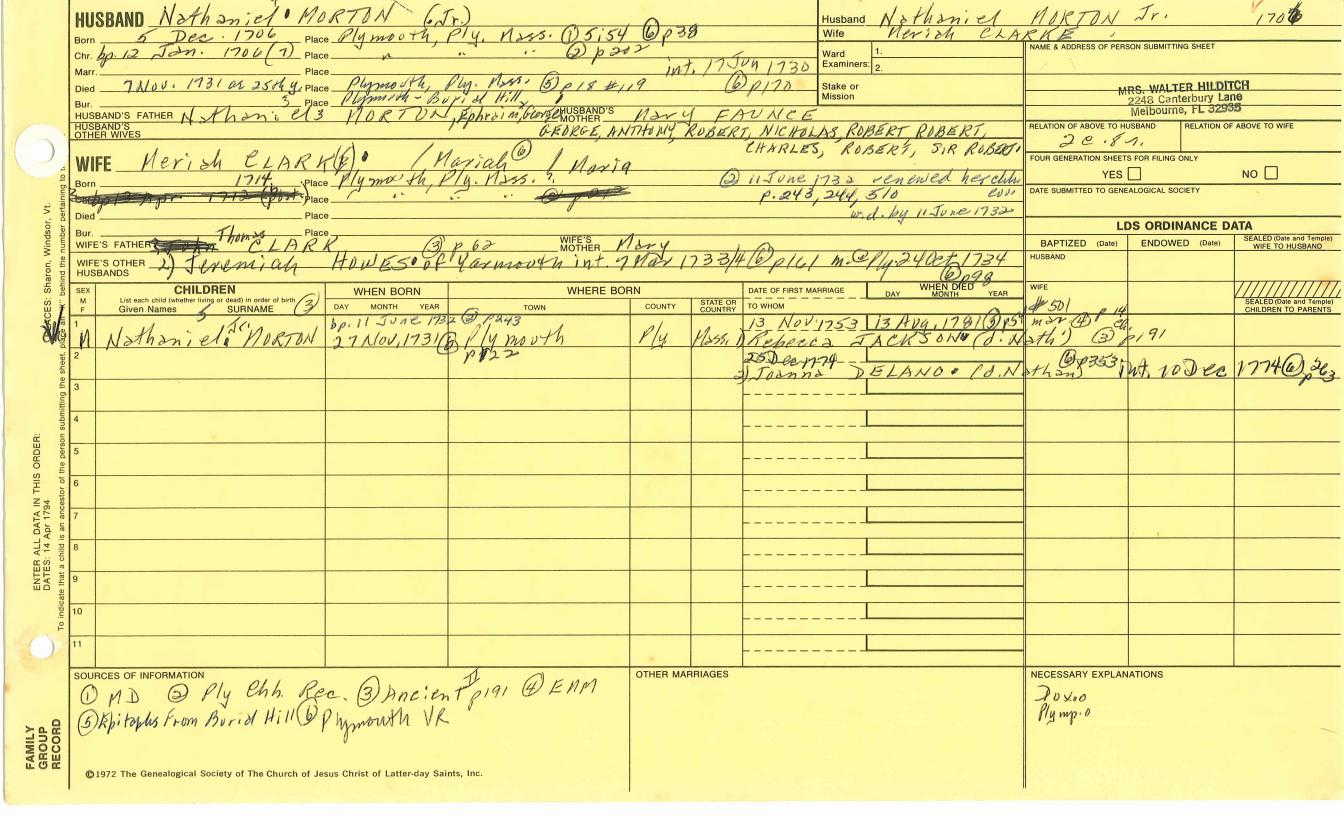 HUSBAND Nathaniel MORTON (Jr.)
Born 5 Dec. 1706 Place Plymouth, Ply. Mass. ① 5:54 ⑥ p38
Chr. bp. 12 Jan. 1706(7) Place " " " ② p202
Marr. Place int. 17 Jun 1730
Died 7 Nov. 1731 or 25th y. Place Plymouth, Ply. Mass. ⑤ p18 #119 ⑥ p170
Bur. Place Plymouth - Burial Hill
HUSBAND'S FATHER Nathaniel 3 MORTON, Ephraim, George HUSBAND'S MOTHER Mary FAUNCE
HUSBAND'S OTHER WIVES GEORGE, ANTHONY, ROBERT, NICHOLAS, ROBERT ROBERT,
CHARLES, ROBERT, SIR ROBERT
Husband Nathaniel MORTON Jr. 1706
Wife Meriah CLARKE
Ward Examiners: 1.
2.
Stake or Mission
NAME & ADDRESS OF PERSON SUBMITTING SHEET
MRS. WALTER HILDITCH
2248 Canterbury Lane
Melbourne, FL 32935
RELATION OF ABOVE TO HUSBAND RELATION OF ABOVE TO WIFE
2c.8r.
FOUR GENERATION SHEETS FOR FILING ONLY
YES NO
DATE SUBMITTED TO GENEALOGICAL SOCIETY
LDS ORDINANCE DATA
BAPTIZED (Date) ENDOWED (Date) SEALED (Date and Temple) WIFE TO HUSBAND
HUSBAND
WIFE
SEALED (Date and Temple) CHILDREN TO PARENTS
WIFE Meriah CLARK(E) / Mariah ⑥ / Maria
Born 1714 Place Plymouth, Ply. Mass. ② 11 June 1732 renewed her chh
Place " " " p. 243, 244, 510 cov
Died Place w.d. by 11 June 1732
Bur. Place
WIFE'S FATHER Thomas CLARK ③ p 62 WIFE'S MOTHER Mary
WIFE'S OTHER HUSBANDS 2) Jeremiah HOWES of Yarmouth int. 7 Mar 1733/4 ⑥ p161 m. @ Ply. 24 Oct 1734
⑥ p98
SEX M F CHILDREN WHEN BORN WHERE BORN DATE OF FIRST MARRIAGE WHEN DIED
List each child (whether living or dead) in order of birth ③
Given Names SURNAME DAY MONTH YEAR TOWN COUNTY STATE OR COUNTRY TO WHOM DAY MONTH YEAR
1 bp. 11 June 1732 ② p243 13 Nov. 1753 13 Aug. 1781
M Nathaniel Jr. MORTON 27 Nov, 1731 Plymouth Ply Mass. 1) Rebecca JACKSON (d. Nath') ③ p191
p122
#501
2 25 Dec 1774
2) Joanna DELANO (d. Nathan) ⑥ p353 int. 10 Dec 1774 ⑥ p263
3
4
5
6
7
8
9
10
11
SOURCES OF INFORMATION
① MD ② Ply Chh. Rec. ③ Ancient II p191 ④ EAM
⑤ Epitaphs From Burial Hill ⑥ Plymouth VR
OTHER MARRIAGES
NECESSARY EXPLANATIONS
Plymp.0
©1972 The Genealogical Society of The Church of Jesus Christ of Latter-day Saints, Inc.
FAMILY GROUP RECORD
ENTER ALL DATA IN THIS ORDER:
DATES: 14 Apr 1794
PLACES: Sharon, Windsor, Vt.
To indicate that a child is an ancestor of the person submitting the sheet, place an behind the number pertaining to